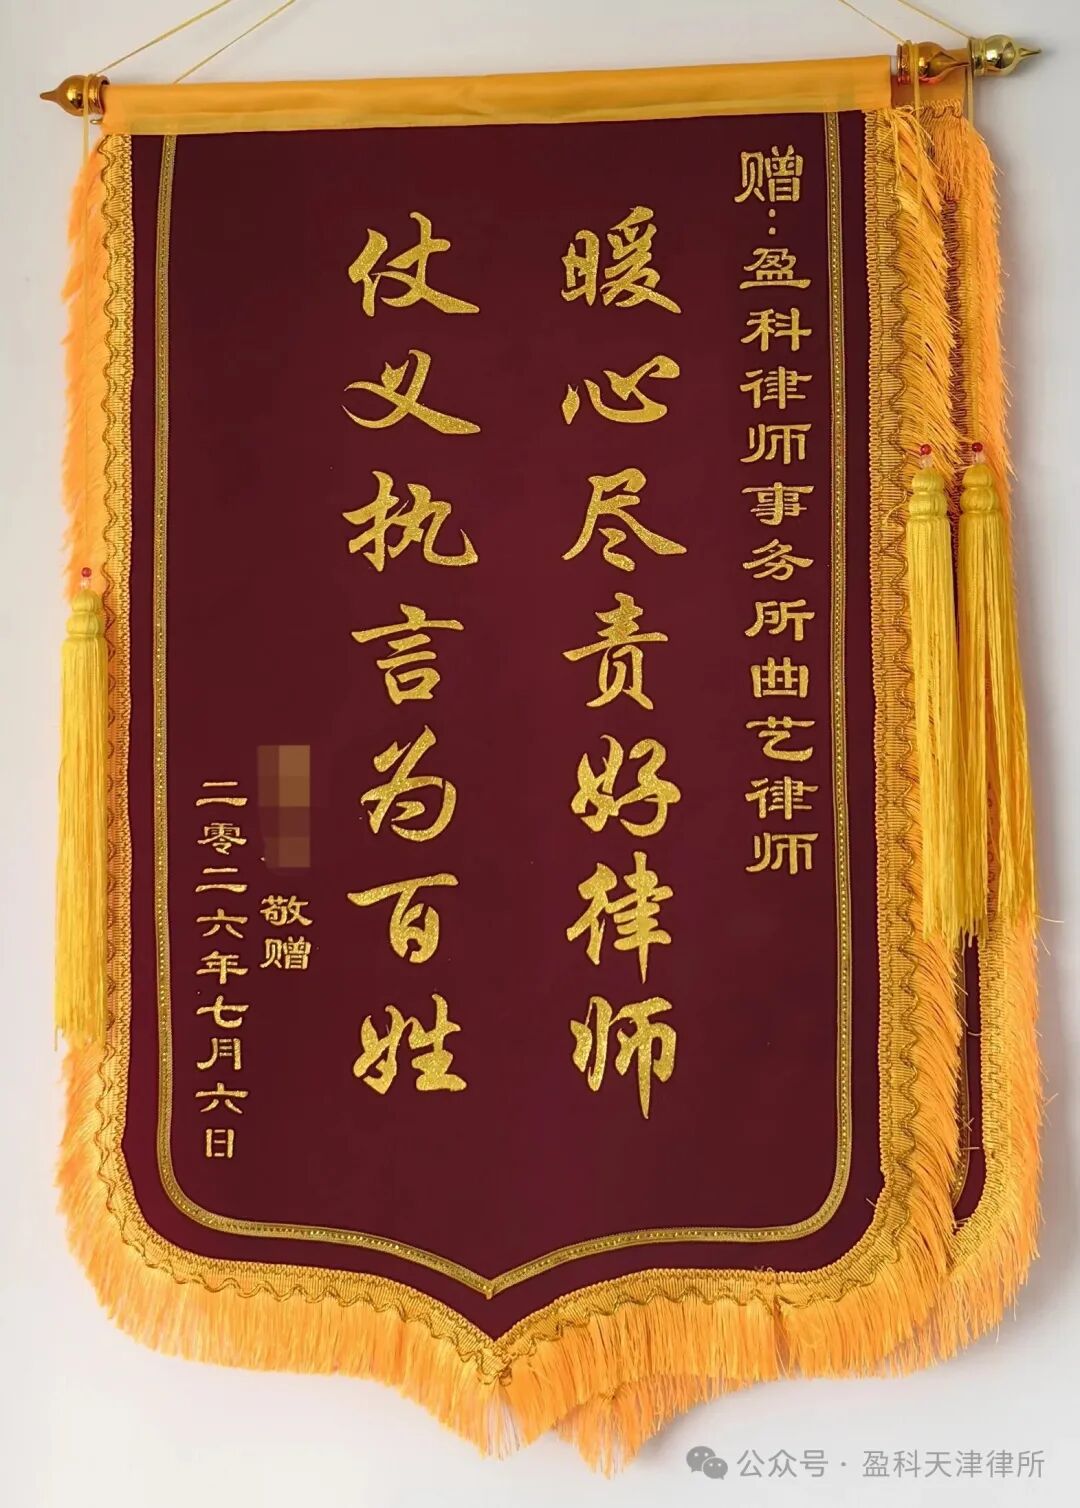 赠：盈科律师事务所曲艺律师
暖心尽责好律师
仗义执言为百姓
敬赠
二零二六年七月六日
公众号·盈科天津律所